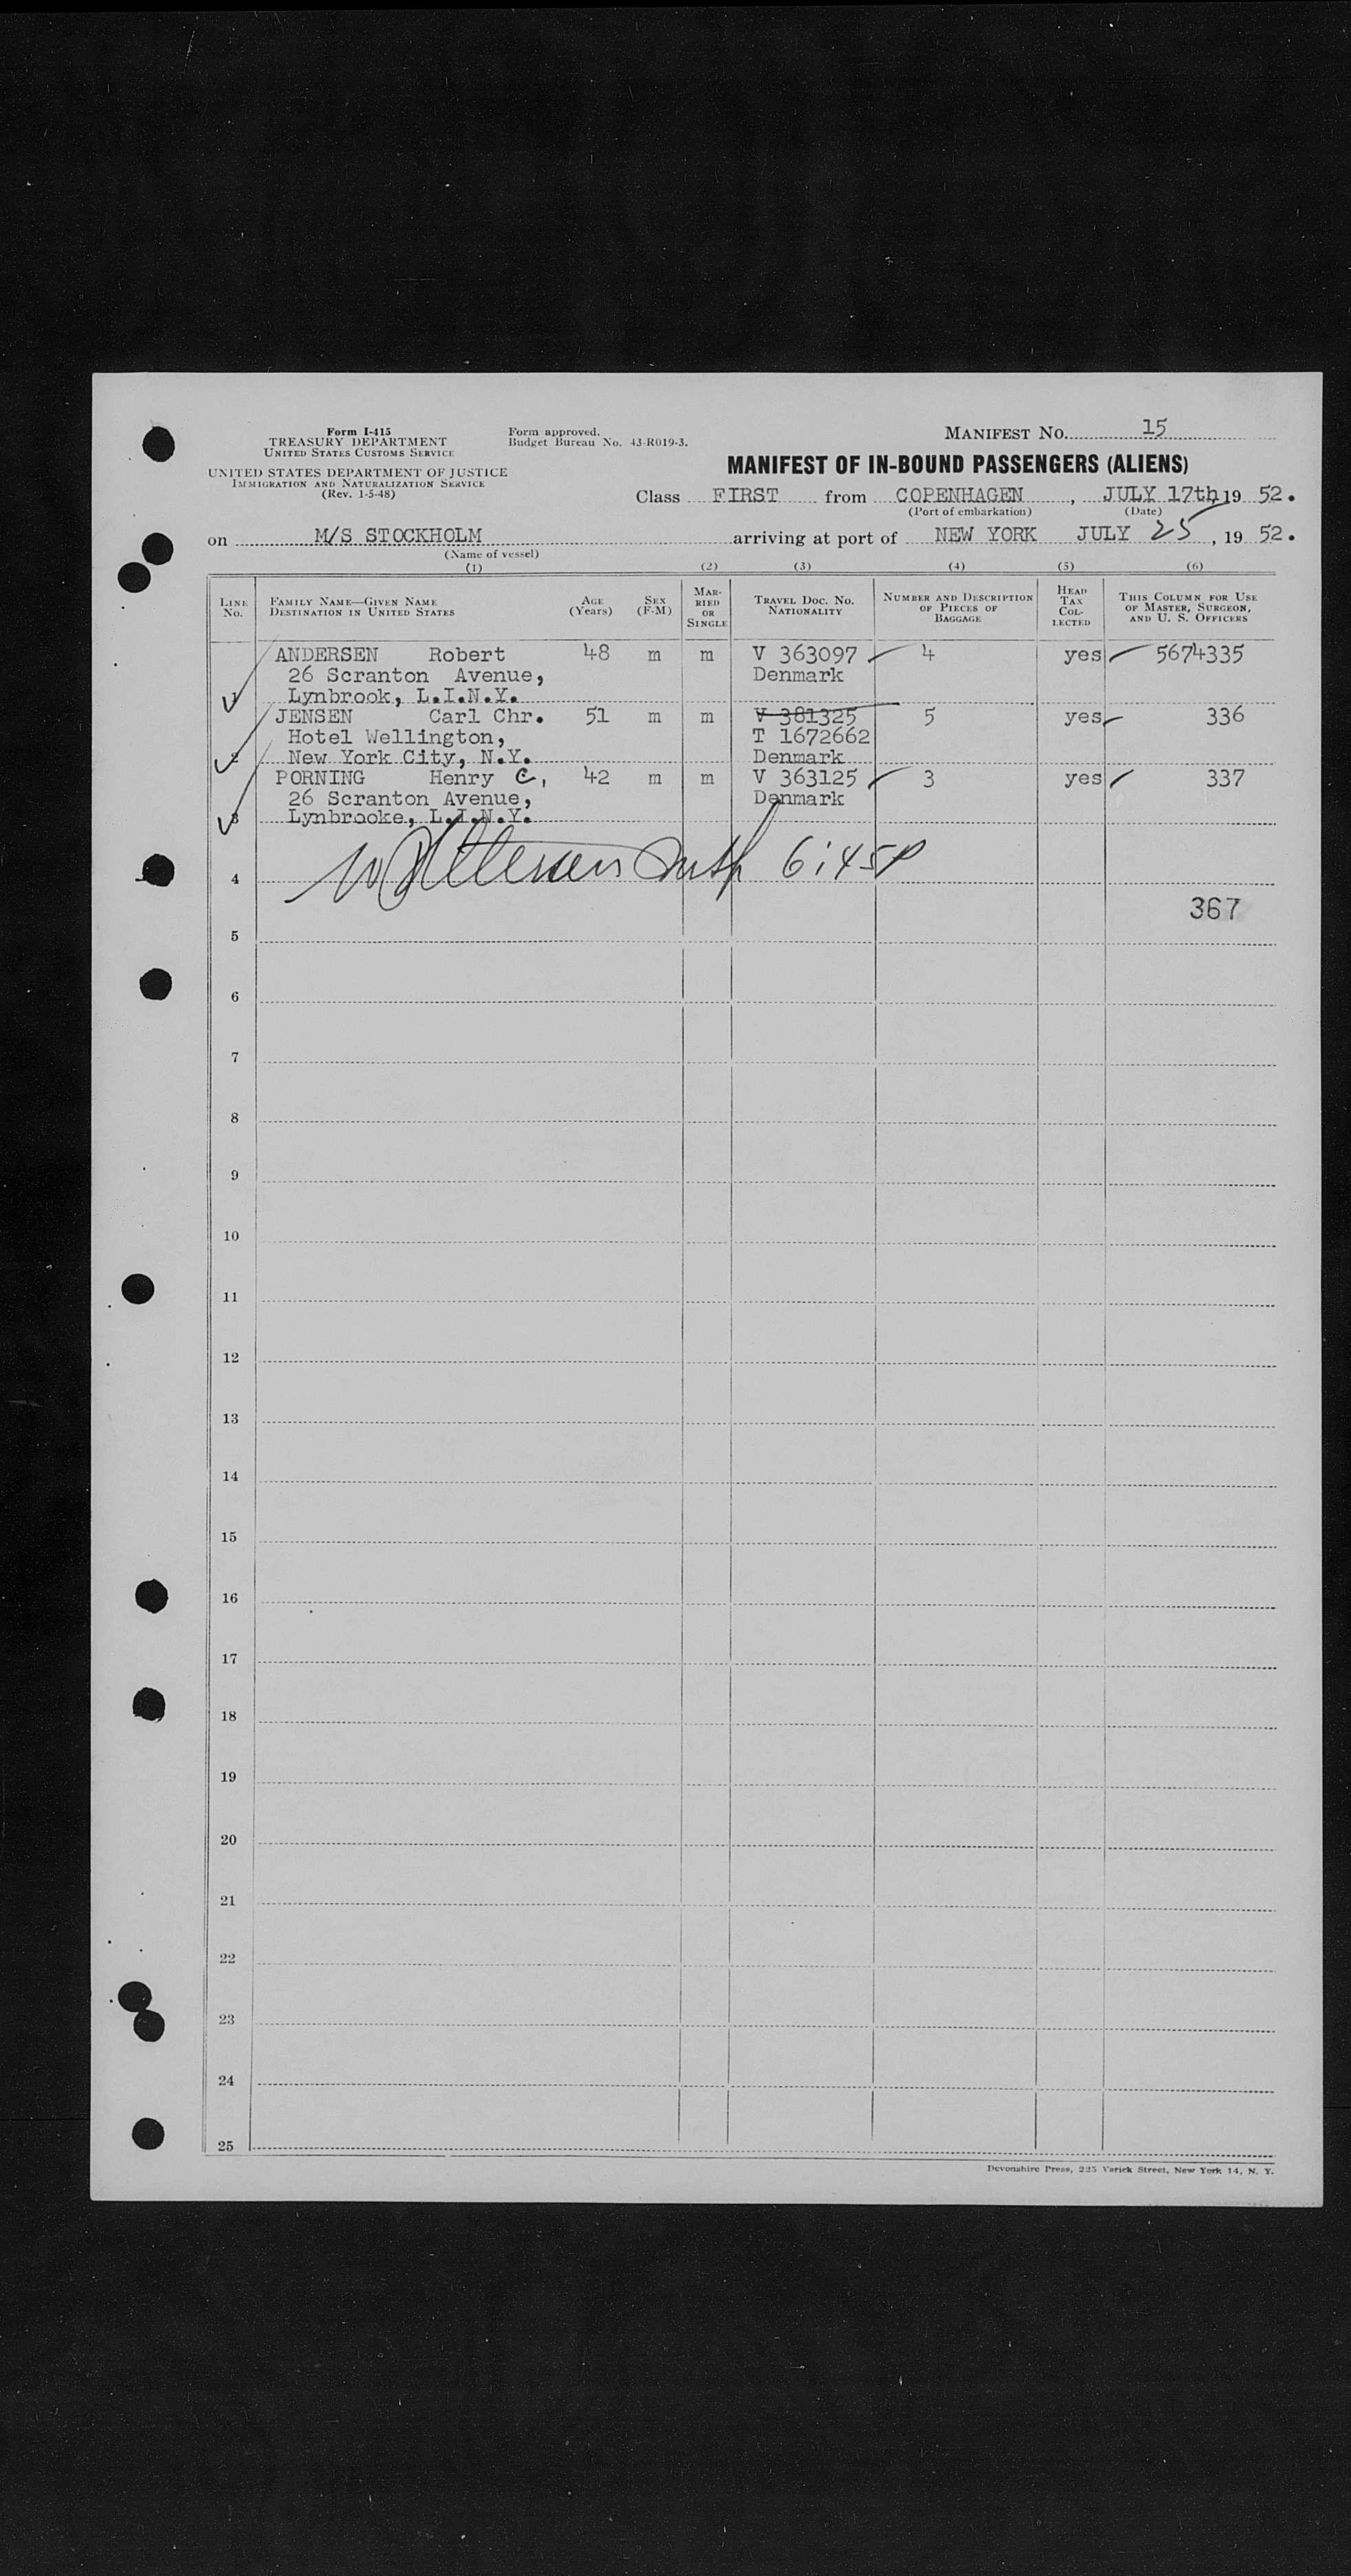 Form I-415
TREASURY DEPARTMENT
UNITED STATES CUSTOMS SERVICE
UNITED STATES DEPARTMENT OF JUSTICE
IMMIGRATION AND NATURALIZATION SERVICE
(Rev. 1-5-48)
Form approved.
Budget Bureau No. 43-R019-3.
MANIFEST NO. 15
MANIFEST OF IN-BOUND PASSENGERS (ALIENS)
Class FIRST from COPENHAGEN, JULY 17th 19 52.
(Port of embarkation) (Date)
on M/S STOCKHOLM arriving at port of NEW YORK JULY 25, 19 52.
(Name of vessel)
(1) (2) (3) (4) (5) (6)
LINE No. FAMILY NAME—GIVEN NAME DESTINATION IN UNITED STATES AGE (Years) SEX (F-M) MARRIED OR SINGLE TRAVEL DOC. NO. NATIONALITY NUMBER AND DESCRIPTION OF PIECES OF BAGGAGE HEAD TAX COLLECTED THIS COLUMN FOR USE OF MASTER, SURGEON, AND U. S. OFFICERS
ANDERSEN Robert 48 m m V 363097 4 yes 5674335
26 Scranton Avenue, Denmark
1 Lynbrook, L.I.N.Y.
JENSEN Carl Chr. 51 m m V 381325 5 yes 336
Hotel Wellington, T 1672662
2 New York City, N.Y. Denmark
PORNING Henry C, 42 m m V 363125 3 yes 337
26 Scranton Avenue, Denmark
3 Lynbrooke, L.I.N.Y.
6:45P
4
367
5
6
7
8
9
10
11
12
13
14
15
16
17
18
19
20
21
22
23
24
25
Devonshire Press, 225 Varick Street, New York 14, N. Y.